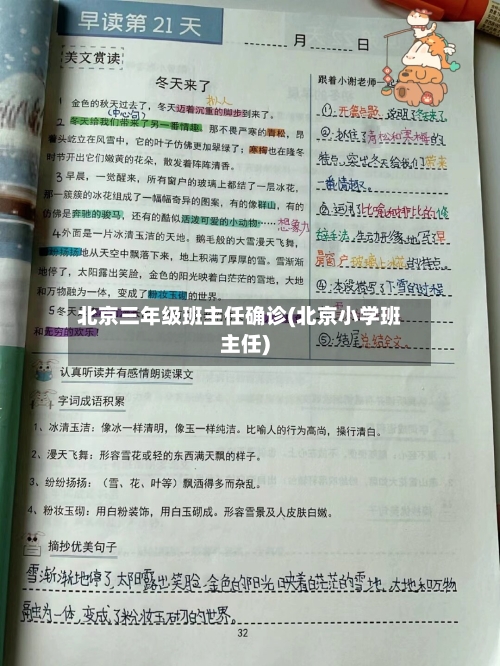 早读第 21 天
月 日
美文赏读
跟着小谢老师
冬天来了
1 金色的秋天过去了，冬天迈着沉重的脚步到来了。
拟人
(中心句)
2 冬天给我们带来了另一番情趣。那不畏严寒的青松，昂
首屹立在风雪中，它的叶子仿佛更加翠绿了；寒梅也在隆冬
时节开出它们嫩黄的花朵，散发着阵阵清香。
3 早晨，一觉醒来，所有窗户的玻璃上都结了一层冰花，
那一簇簇的冰花组成了一幅幅奇异的图案，有的像群山，有的
仿佛是奔驰的骏马，还有的酷似活泼可爱的小动物……
想象力
4 外面是一片冰清玉洁的天地。鹅毛般的大雪漫天飞舞，
纷纷扬扬地从天空中飘落下来，地上积满了厚厚的雪。雪渐渐
地停了，太阳露出笑脸，金色的阳光映着白茫茫的雪地，大地
和万物融为一体，变成了粉妆玉砌的世界。
5 冬天
和无穷的欢乐！
①开篇点题，说明冬天来了
②抓住了青松和寒梅的
特点，突出冬天给我们带来
一番情趣。
③运用比喻和排比的修
辞手法，生动形象地写了早
晨窗户玻璃上冰花的特点。
④本段描写了下雪的时候
⑤结尾总结全文。
北京三年级班主任确诊(北京小学班
主任)
认真听读并有感情朗读课文
字词成语积累
1、冰清玉洁：像冰一样清明，像玉一样纯洁。比喻人的行为高尚，操行清白。
2、漫天飞舞：形容雪花或轻的东西满天飘的样子。
3、纷纷扬扬：（雪、花、叶等）飘洒得多而杂乱。
4、粉妆玉砌：用白粉装饰，用白玉砌成。形容雪景及人皮肤白嫩。
摘抄优美句子
雪渐渐地停了，太阳露出笑脸，金色的阳光映着白茫茫的雪地，大地和万物
融为一体，变成了粉妆玉砌的世界。
32